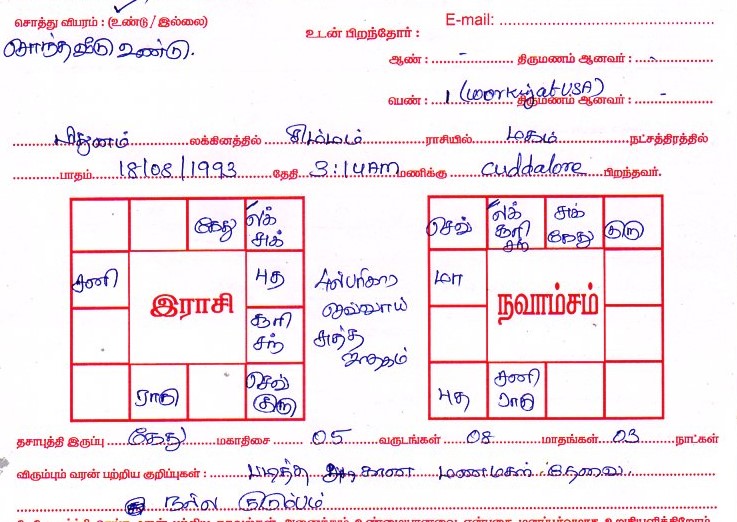 சொத்து விபரம் : (உண்டு / இல்லை)
சொந்த வீடு உண்டு.
E-mail:
உடன் பிறந்தோர் :
ஆண் : - திருமணம் ஆனவர் : -
பெண் : 1 (working at USA) திருமணம் ஆனவர் : -
மிதுனம் லக்கினத்தில் சிம்மம் ராசியில் மகம் நட்சத்திரத்தில்
பாதம் 18/08/1993 தேதி 3:14AM மணிக்கு cuddalore பிறந்தவர்.
கேது
லக்
சுக்
சனி
புத
சூரி
சந்
ராகு
செவ்
குரு
இராசி
பரிகார
செவ்வாய்
சுத்த
ஜாதகம்
செவ்
லக்
சூரி
சந்
சுக்
கேது
குரு
மா
புத
சனி
ராகு
நவாம்சம்
தசாபுத்தி இருப்பு கேது மகாதிசை 05 வருடங்கள் 08 மாதங்கள் 03 நாட்கள்
விரும்பும் வரன் பற்றிய குறிப்புகள் : படித்த அழகான மணமகள் தேவை.
நல்ல குடும்பம்